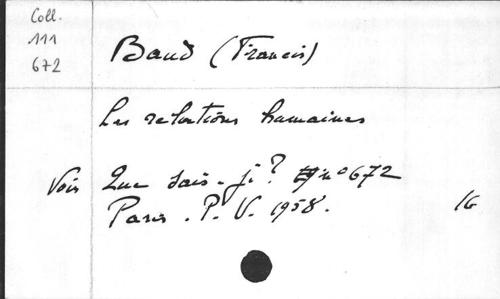 Coll.
111
672
Baud (Francis)
Les relations humaines
Voir Que sais-je? n° 672
Paris. P. V. 1958.
16